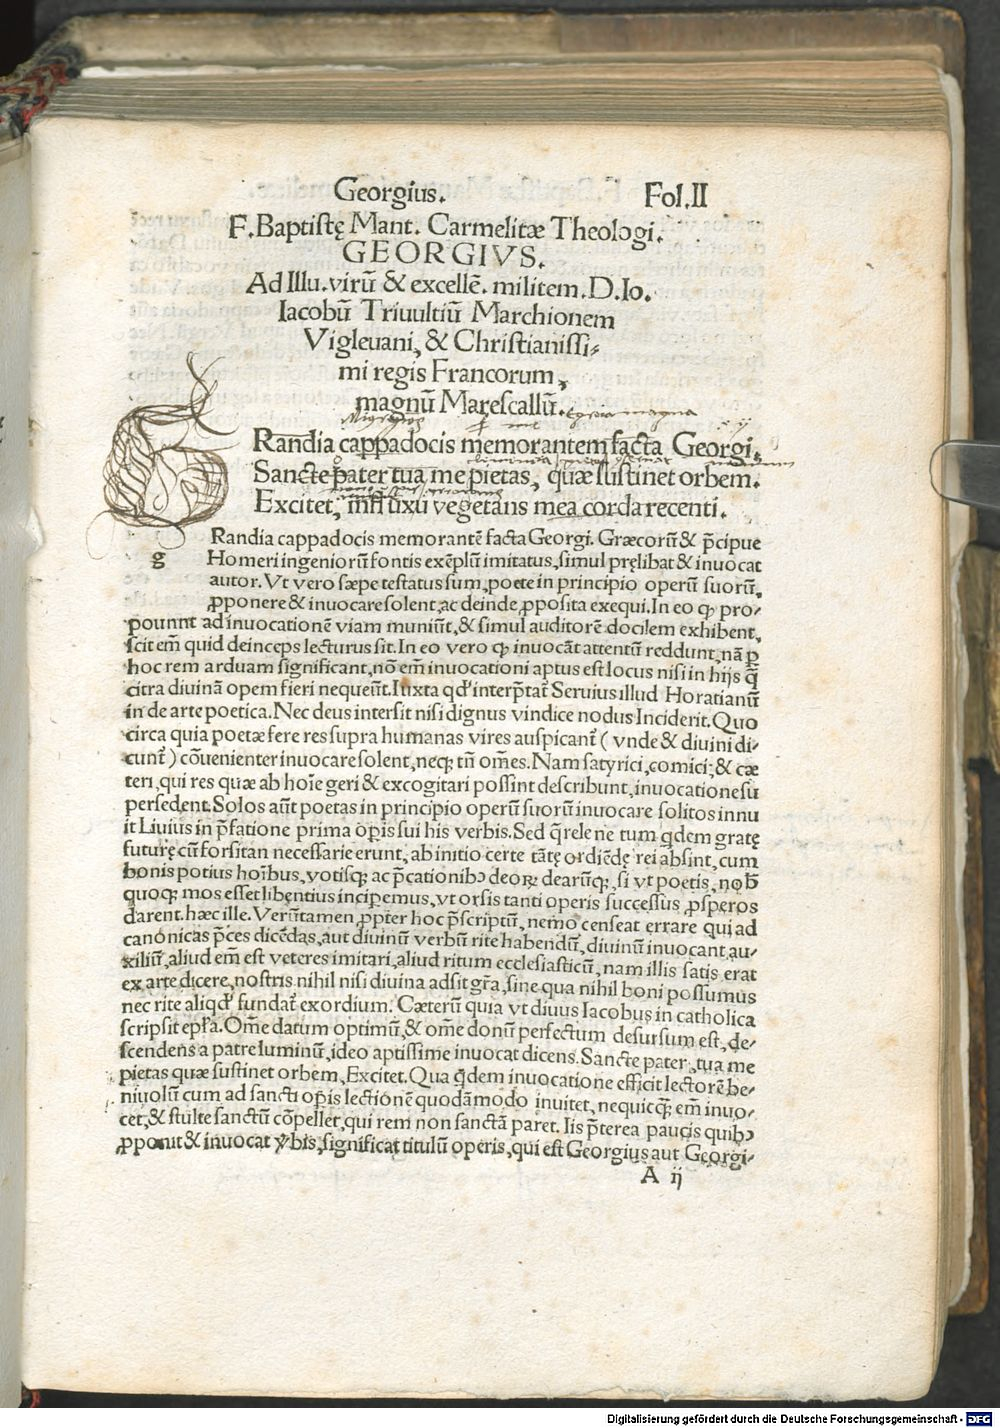 Georgius. Fol.II
F.Baptistę Mant. Carmelitæ Theologi.
GEORGIVS.
Ad Illu.virū & excellē. militem.D.Io.
Iacobū Triuultiū Marchionem
Vigleuani, & Christianissi-
mi regis Francorum,
magnū Marescallū.
magna
GRandia cappadocis memorantem facta Georgi,
Sancte p̄ater tua me pietas, quæ sustinet orbem.
Excitet, influxu vegetans mea corda recenti.
Randia cappadocis memorantē facta Georgi. Græcorū & p̄cipue
g Homeri ingeniorū fontis exēplū imitatus, simul pręlibat & inuocat
autor. Vt vero sæpe testatus sum, poete in principio operū suorū,
ꝓponere & inuocare solent, ac deinde ꝓposita exequi. In eo ꝙ pro-
pounnt ad inuocationē viam muniūt, & simul auditorē docilem exhibent,
scit em̄ quid deinceps lecturus sit. In eo vero ꝙ inuocāt attentū reddunt, nā ꝑ
hoc rem arduam significant, nō em̄ inuocationi aptus est locus nisi in hijs q̄
citra diuinā opem fieri nequeūt. Iuxta qd' interp̄tat̄ Seruius illud Horatianū
in de arte poetica. Nec deus intersit nisi dignus vindice nodus Inciderit. Quo
circa quia poetæ fere res supra humanas vires auspicant̄ ( vnde & diuini di-
cunt̄ ) cōuenienter inuocare solent, neqꝫ tn̄ om̄es. Nam satyrici, comici, & cæ
teri, qui res quæ ab hoīe geri & excogitari possint describunt, inuocatione su
persedent. Solos aūt poetas in principio operū suorū inuocare solitos innu
it Liuius in p̄fatione prima op̄is sui his verbis. Sed q̄rele ne tum q̄dem gratę
futurę cū forsitan necessarie erunt, ab initio certe tātę ordiēdę rei absint, cum
bonis potius hoībus, votisqꝫ ac p̄cationibꝰ deoꝝ dearūqꝫ, si vt poetis, nob̄
quoqꝫ mos esset libentius inciꝑemus, vt orsis tanti operis successus ꝓsperos
darent. hæc ille. Verūtamen ꝓpter hoc p̄scriptū, nemo censeat errare qui ad
canonicas p̄ces dicēdas, aut diuinū verbū rite habendū, diuinū inuocant au-
xiliū, aliud em̄ est veteres imitari, aliud ritum ecclesiasticū, nam illis satis erat
ex arte dicere, nostris nihil nisi diuina adsit gr̄a, sine qua nihil boni possumus
nec rite aliqd' fundat̄ exordium. Cæterū quia vt diuus Iacobus in catholica
scripsit epl̄a. Om̄e datum optimū, & om̄e donū perfectum desursum est, de-
scendens a patre luminū, ideo aptissime inuocat dicens. Sancte pater, tua me
pietas quæ sustinet orbem, Excitet. Qua q̄dem inuocatione efficit lectorē be-
niuolū cum ad sancti op̄is lectionē quodāmodo inuitet, nequicqꝫ em̄ inuo-
cet, & stulte sanctū cōpellet, qui rem non sanctā paret. Iis p̄terea paucis quibꝰ
ꝓponit & inuocat ꝟbis, significat titulū operis, qui est Georgius aut Georgi-
A ij
Digitalisierung gefördert durch die Deutsche Forschungsgemeinschaft - DFG